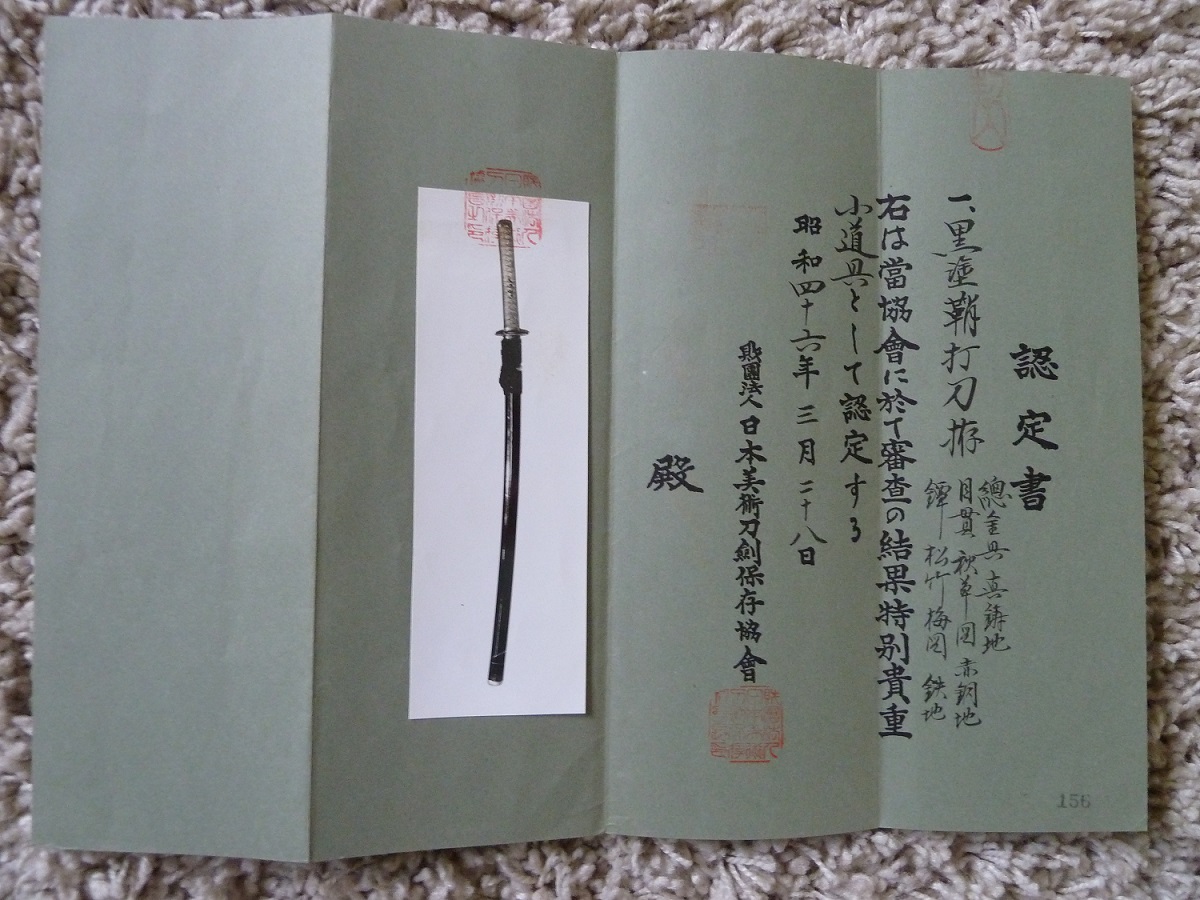 認定書
一、黒塗鞘打刀拵
總金具 真鋳地
目貫 秋草図 赤銅地
鐔 松竹梅図 鉄地
右は當協會に於て審査の結果特別貴重
小道具として認定する
昭和四十六年三月二十八日
財團法人日本美術刀劍保存協會
殿
156